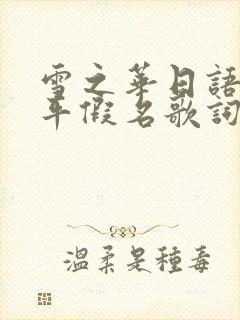 雪之華日語
平假名歌詞
溫柔是種毒